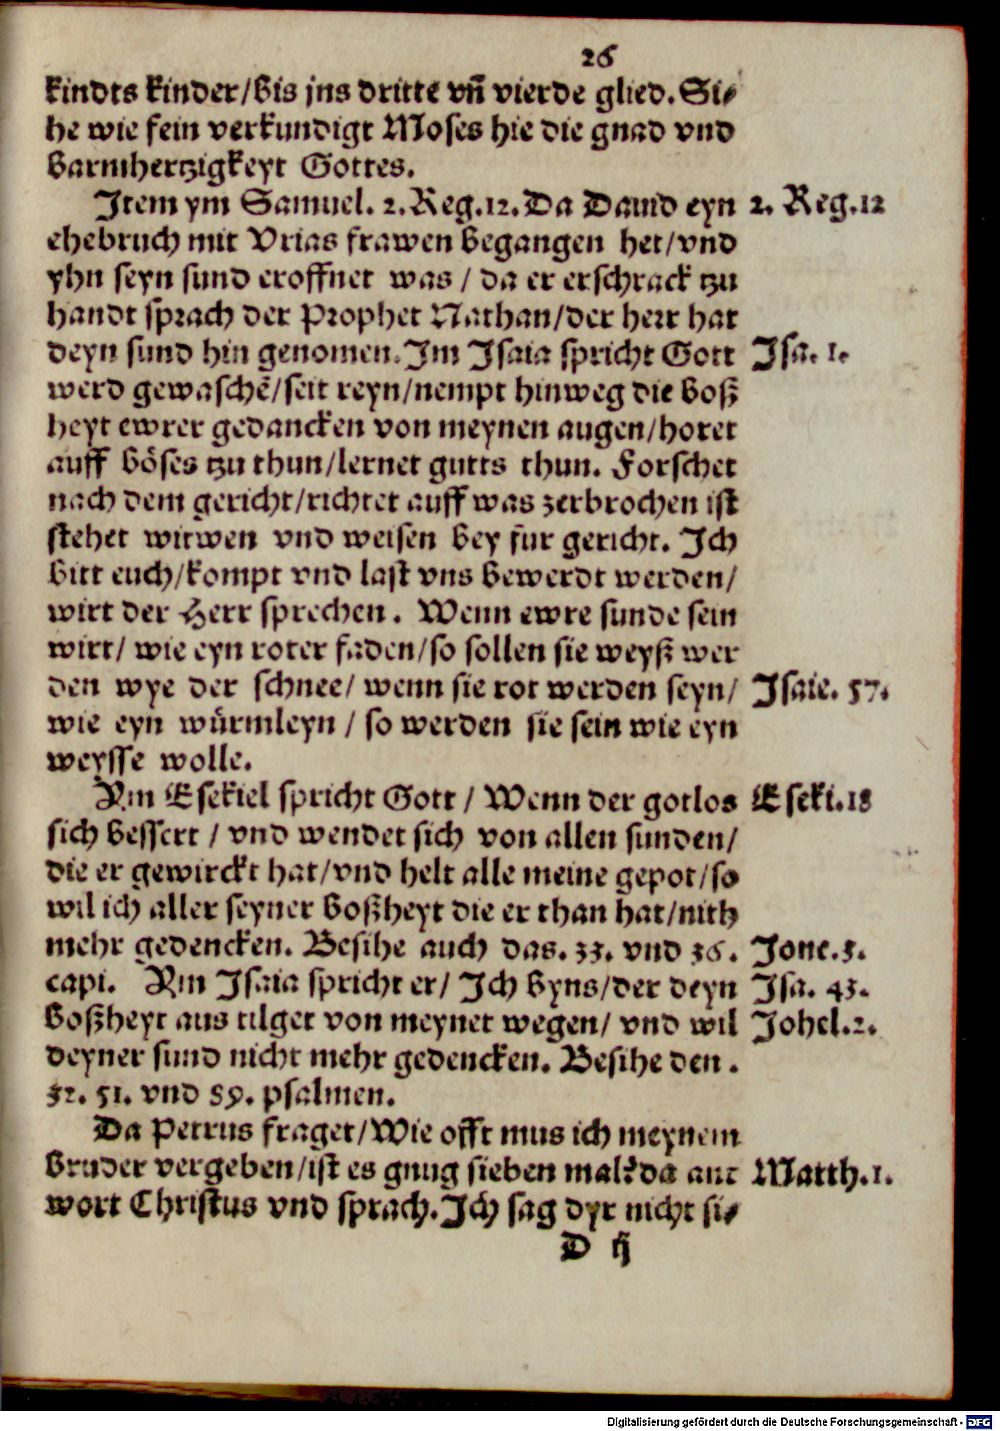 26
kindts kinder/bis jns dritte vñ vierde glied. Si⸗
he wie fein verkundigt Moses hie die gnad vnd
barmhertzigkeyt Gottes.
Item ym Samuel. 2. Reg. 12. Da Dauid eyn 2. Reg. 12
ehebruch mit Vrias frawen begangen het/vnd
yhn seyn sund eroffnet was / da er erschrack tzu
handt sprach der Prophet Nathan/der herr hat
deyn sund hin genomen. Im Isaia spricht Gott Isa. 1.
werd gewaschē/seit reyn/nempt hinweg die boß
heyt ewrer gedancken von meynen augen/horet
auff böses tzu thun/lernet gutts thun. Forschet
nach dem gericht/richtet auff was zerbrochen ist
stehet witwen vnd weisen bey für gericht. Ich
bitt euch/kompt vnd last vns bewerdt werden/
wirt der Herr sprechen. Wenn ewre sunde sein
wirt/ wie eyn roter faden/so sollen sie weyß wer
den wye der schnee/ wenn sie rot werden seyn/ Isaie. 57.
wie eyn würmleyn / so werden sie sein wie eyn
weysse wolle.
Am Esekiel spricht Gott / Wenn der gotlos Eseki. 18
sich bessert / vnd wendet sich von allen sunden/
die er gewirckt hat/vnd helt alle meine gepot/so
wil ich aller seyner boßheyt die er than hat/nith
mehr gedencken. Besihe auch das. 33. vnd 36. Jone. 3.
capi. Am Isaia spricht er/ Ich byns/der deyn Isa. 43.
boßheyt aus tilget von meynet wegen/ vnd wil Johel. 2.
deyner sund nicht mehr gedencken. Besihe den .
32. 51. vnd 59. psalmen.
Da Petrus fraget/Wie offt mus ich meynem
bruder vergeben/ist es gnug sieben mal? da ant Matth. 1.
wort Christus vnd sprach. Ich sag dyr nicht si⸗
D ij
Digitalisierung gefördert durch die Deutsche Forschungsgemeinschaft - DFG